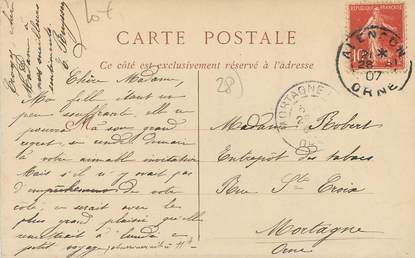 CARTE POSTALE
Ce côté est exclusivement réservé à l'adresse
28)
ALENÇON
28
07
ORNE
MORTAGNE
Chère Madame,
Ma fille étant un
peu souffrante, elle ne
pourra à son grand
regret, se rendre
à votre aimable invitation
Mais s'il n'y avait pas
d'empêchement de votre
côté, ce serait avec le
plus grand plaisir qu'elle
remettrait à lundi ce
petit voyage,
Madame Robert
Entrepôt des tabacs
Rue Ste Croix
Mortagne
Orne